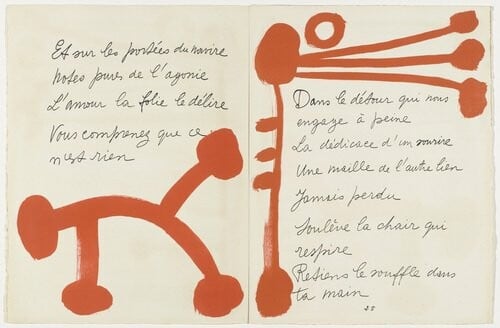 Et sur les portées du navire
Notes pures de l'agonie
L'amour la folie le délire
Vous comprenez que ce
n'est rien
Dans le détour qui nous
engage à peine
La dédicace d'un sourire
Une maille de l'autre lien
Jamais perdu
Soulève la chair qui
respire
Retiens le souffle dans
ta main